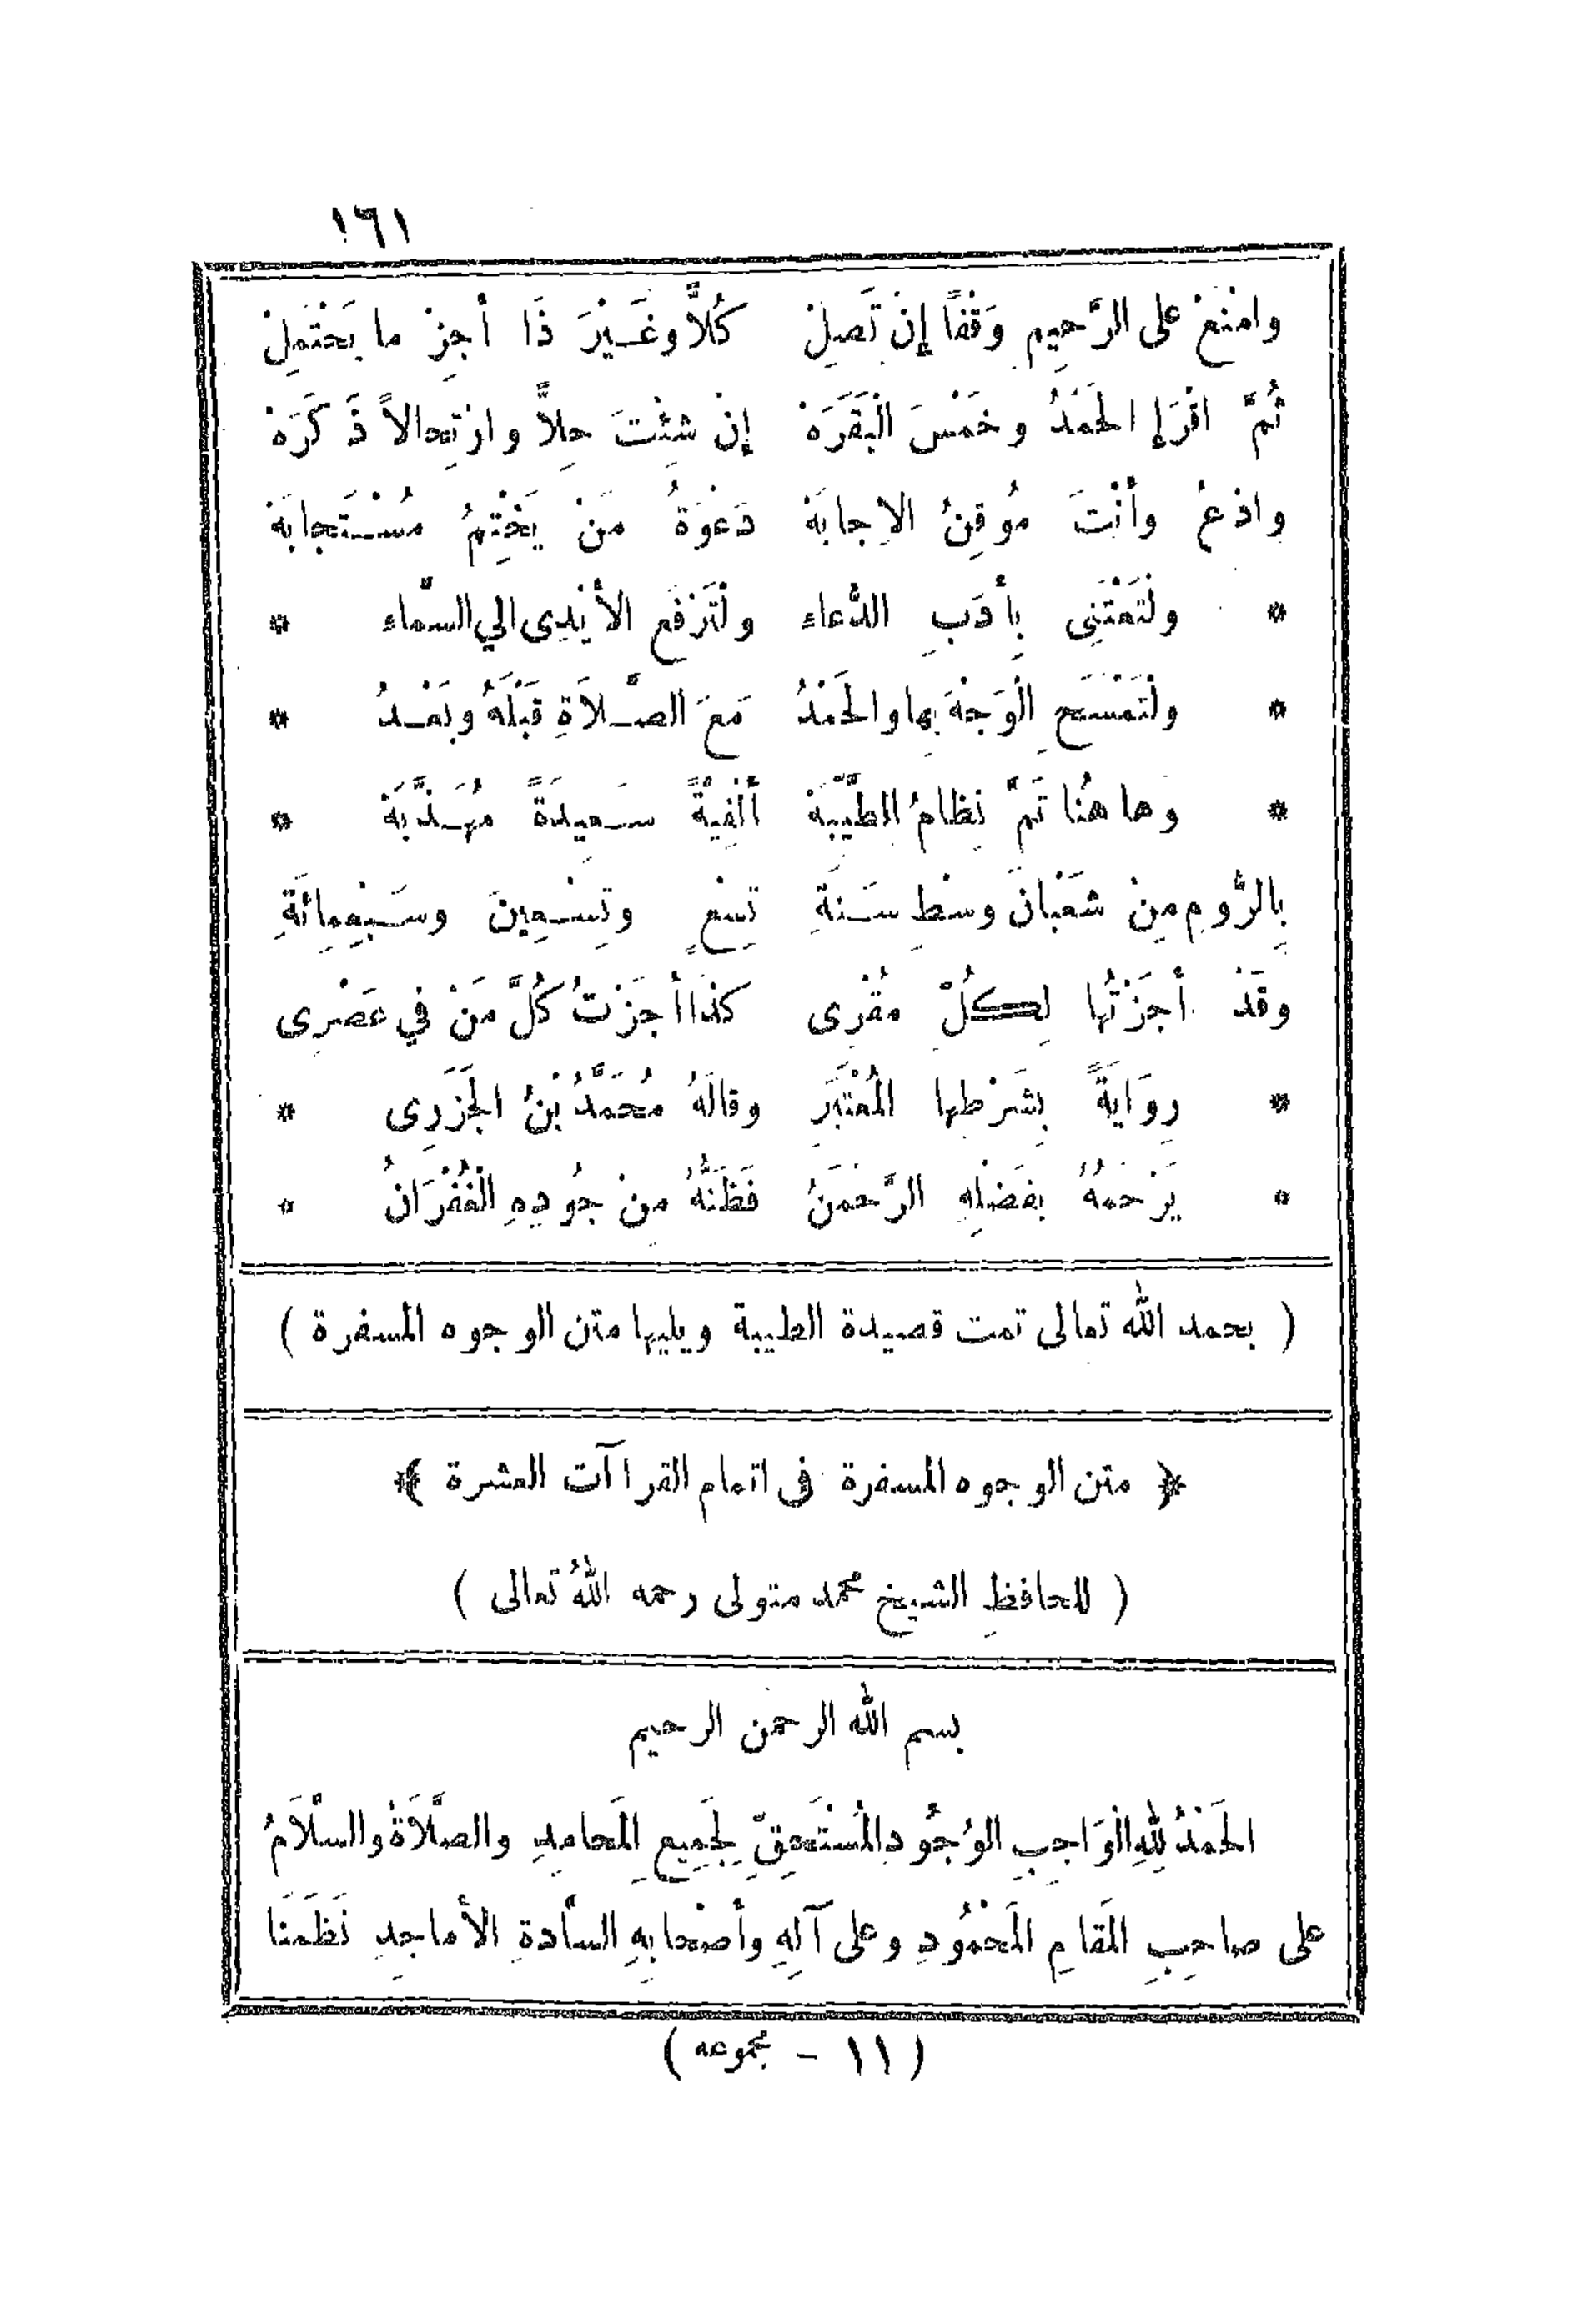 ١٦١
وامْنَعْ على الرَّحِيمِ وَقْفاً إِنْ تَصِلْ كُلاًّ وغَيْرَ ذَا أجِزْ ما يَحْتَمِلْ
ثُمَّ اقْرَإِ الحَمْدُ وخَمْسَ الْبَقَرَهْ إِنْ شِئْتَ حِلاًّ وارْتِحالاً ذَكَرَهْ
وادْعُ وأنْتَ مُوقِنُ الاِجابَهْ دَعْوَةُ مَنْ يَخْتِمُ مُسْتَجابَهْ
* ولْتَعْتَنِى بِأدَبِ الدُّعاء ولْتَرْفَعِ الأيْدِى الي السَّماء *
* ولْتَمْسَحِ الْوَجْهَ بها والحَمْدُ مَعَ الصَّلاَةِ قَبْلَهُ وبَعْدُ *
* وها هُنا تَمَّ نِظامُ الطَّيِّبَهْ ألْفِيَّةً سَعِيدَةً مُهَذَّبَهْ *
بِالرُّومِ مِنْ شَعْبَانَ وسْطِ سَنَةِ تِسْعٍ وتِسْعِينَ وسَبْعِمِائَةِ
وقَدْ أجَزْتُها لِكُلّ مُقْرِى كذَا أجَزْتُ كُلَّ مَنْ في عَصْرِى
* رِوَايَةً بِشَرْطِها المُعْتَبَرِ وقالَهُ مُحَمَّدُ بْنُ الجَزَرِى *
* يَرْحَمُهُ بِفَضْلِهِ الرَّحْمَنُ فَظَنُّهُ مِنْ جُودِهِ الْغُفْرَانُ *
( بحمد الله تعالى تمت قصيدة الطيبة ويليها متن الوجوه المسفرة )
﴿ متن الوجوه المسفرة فى اتمام القراآت العشرة ﴾
( للحافظِ الشيخ محمد متولى رحمه اللهُ تعالى )
بسم الله الرحمن الرحيم
الحَمْدُ للهِ الْوَاجِبِ الوُجُودِ المُسْتَحِقِّ لِجَمِيعِ المَحامِدِ والصَّلاَةُ والسَّلاَمُ
على صاحِبِ المَقامِ المَحْمُودِ وعلى آلِهِ وأصْحابِهِ السَّادةِ الأماجِدِ نَظَمْنَا
( ١١ - مجموعه )